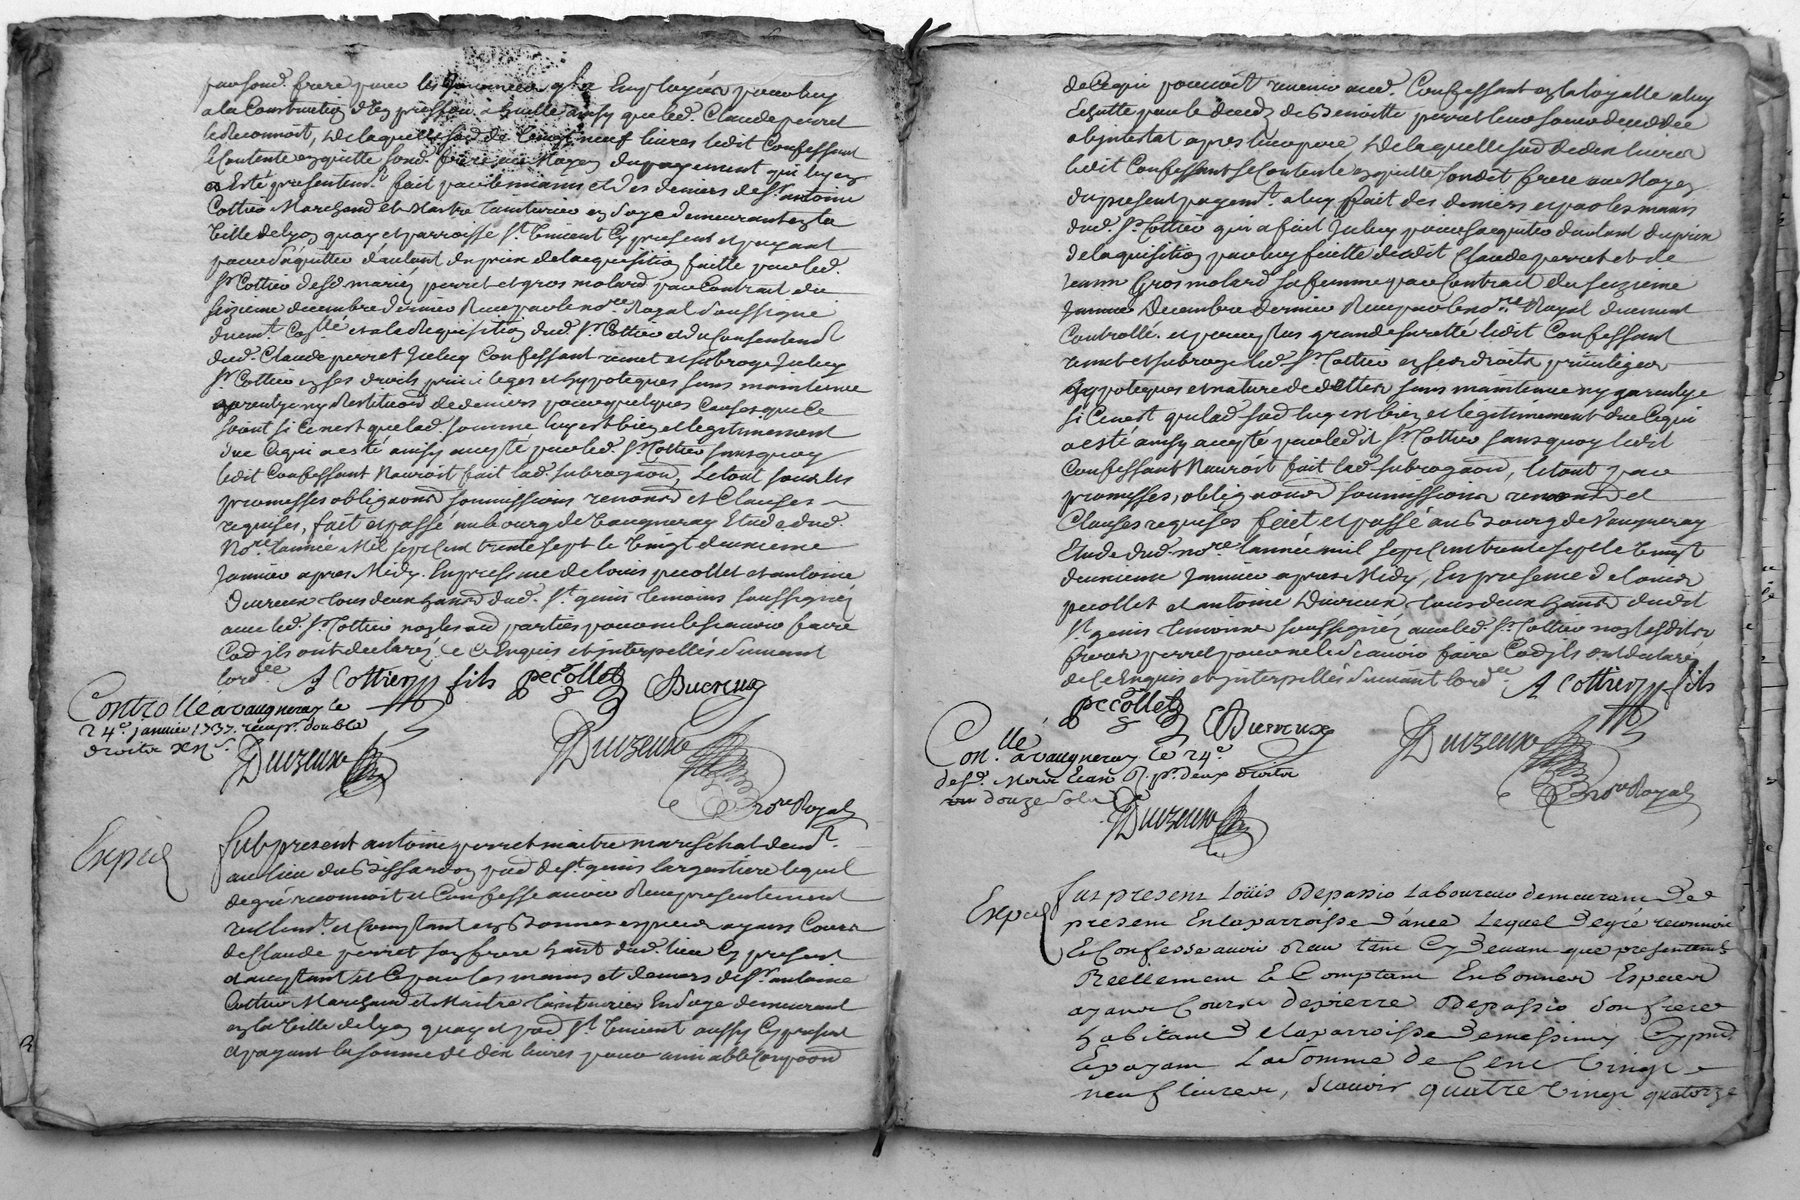 par sond. frere pour les journées qu'il a employées pour luy
a la construction d'un pressoir a huille ainsy que led. Claude perret
le reconnoit, de laquelle somme de vingt neuf livres ledit Confessant
se Contente en quitte sond. frere au Moyen du payement qui luy en
a Esté présentemt. fait par les mains et des deniers de Sr. antoine
Cottier Marchand et Maitre tainturier en Soye demeurant en la
Ville de Lyon quay et parroisse St. Vincent Cy present et payant
pour s'acquitter d'autant du prix de lacquisition faitte par led.
Sr. Cottier desd. mariés perret et gros molard par Contrat du
seizieme decembre dernier Receu par le nore. Royal soussigné
duemt. Conllé et a la Requisition dud. Sr. Cottier et du Consentemt.
dud. Claude perret Iceluy Confessant remet et subroge Iceluy
Sr. Cottier en ses droits privileges et hypoteques sans maintenue
garentye ny Restitution de deniers pour quelques Causes que Ce
soient si Ce n'est que lad. somme luy est bien et legitimement
due Ce qui a esté ainsy accepté par led. Sr. Cottier sans quoy
ledit Confessant Nauroit fait lad. subrogaon, Le tout sous les
promesses obligaons soumissions renonons et Clauses
requises, fait et passé au bourg de Vaugneray Etude dud.
Nore. L'année Mil sept Cent trente sept le Vingt deuxieme
Janvier apres Midy. En presence de Louis pecollet et antoine
Ducreux tous deux habants dud. St. genis temoins soussignés
avec led. Sr. Cottier non lesd. parties pour ne le scavoir faire
Com'ils ont declarés de Ce Enquis et interpellés suivant
lordce.
A Cottier fils pecollet Ducreux
Controllé a vaugneray le
24e. janvier 1737. reçu pr. double
droits
Duizeux
Duizeux
Nore Royal
Expié
fut present antoine perret maitre mareschal demt.
au lieu du Bissardon parr. de St. genis largentiere lequel
de gré reconnoit et Confesse avoir Receu presentement
reellemt. et Comptant en Bonnes especes ayant Cours
de Claude perret son frere habant dud. lieu Cy present
et acceptant et Ce par les mains et deniers de Sr. antoine
Cottier Marchand et Maitre tainturier en Soye demeurant
en la Ville de Lyon quay et parr. St. Vincent aussy Cy present
et payant la somme de dix livres pour amiable Compoon
de Ce qui pouvoit revenir aud. Confessant en la loyalle a luy
Echutte par le deceds de Benoitte perret leur soeur decedée
abintestat apres leur pere, de laquelle somme de dix livres
ledit Confessant se Contente en quitte sondit frere au Moyen
du present payemt. a luy fait des deniers et par les mains
dud. Sr. Cottier qui a fait Iceluy pour sacquitter dautant du prix
de laquisition par luy faitte dudit Claude perret et de
Jeanne Gros molard sa femme par Contrat du seizieme
Decembre dernier Receu par le nore. Royal duement
Controllé. et pour plus grande suretté ledit Confessant
remet et subroge led. Sr. Cottier en ses droits privileges
hypoteques et nature de dettes sans maintenue ny garentye
si Ce n'est que lad. somme luy est bien et legitimement due Ce qui
a esté ainsy accepté par ledit Sr. Cottier sans quoy ledit
Confessant Nauroit fait lad. subrogaon, le tout par
promesses, obligaons soumissions renonons et
Clauses requises fait et passé au Bourg de Vaugneray
Etude dud. nore. l'année mil sept Cent trente sept le Vingt
deuxieme Janvier apres Midy, En presence de Louis
pecollet et antoine Ducreux tous deux habants dudit
St. genis temoins soussignés avec led. Sr. Cottier non lesdits
freres perret pour ne le scavoir faire Com'ils ont declaré
de Ce Enquis et interpellés suivant lordce.
A Cottier fils
pecollet Ducreux
Conllé. a vaugneray le 24e.
desd. Mois et an R. pr. deux droits
douze sols
Duizeux
Duizeux
Nore Royal
Expié
fut present Loüis Depassio Laboureur demeurant de
present En la parroisse d'ance Lequel de gré reconnoit
et Confesse avoir Receu tant Cy devant que presentement
Reellement et Comptant En bonnes Especes
ayant Cours de pierre Depassio son frere
habitant de la parroisse de messimy Cy prnt.
Et payant La Somme de Cent Vingt
neuf livres, Scavoir quatre Vingt quatorze